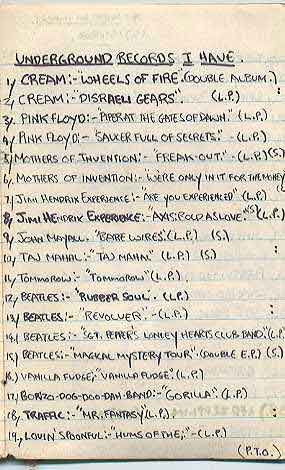 UNDERGROUND RECORDS I HAVE.
1,) CREAM:- "WHEELS OF FIRE". (DOUBLE ALBUM.)
2,) CREAM:- "DISRAELI GEARS". (L.P.)
3,) PINK FLOYD:- "PIPER AT THE GATES OF DAWN". (L.P.)
4,) PINK FLOYD:- "SAUCER FULL OF SECRETS." - (L.P.)
5,) MOTHERS OF INVENTION:- "FREAK OUT." - (L.P.) (S.)
6,) MOTHERS OF INVENTION:- "WERE ONLY IN IT FOR THE MONEY
7,) JIMI HENDRIX EXPERIENCE:- "ARE YOU EXPERIENCED" (L.P.)
8,) JIMI HENDRIX EXPERIENCE:- AXIS: BOLD AS LOVE." (S) (L.P.)
9,) JOHN MAYALL. "BARE WIRES". (L.P.) (S.)
10,) TAJ MAHAL:- "TAJ MAHAL" (L.P.) (S.)
11,) TOMMOROW:- "TOMMOROW" (L.P.)
12,) BEATLES:- "RUBBER SOUL". (L.P.)
13,) BEATLES:- "REVOLVER". - (L.P.)
14,) BEATLES:- "SGT. PEPPER'S LONLEY HEARTS CLUB BAND." (L.P.)
15,) BEATLES:- "MAGICAL MYSTERY TOUR". (DOUBLE E.P.) (S.)
16,) VANILLA FUDGE; "VANILLA FUDGE". (L.P.)
17,) BONZO-DOG-DOO-DAH-BAND:- "GORILLA". (L.P.)
18,) TRAFFIC:- "MR. FANTASY" (L.P.)
19,) LOVIN' SPOONFUL:- "HUMS OF THE;" - (L.P.)
(P.T.O.)